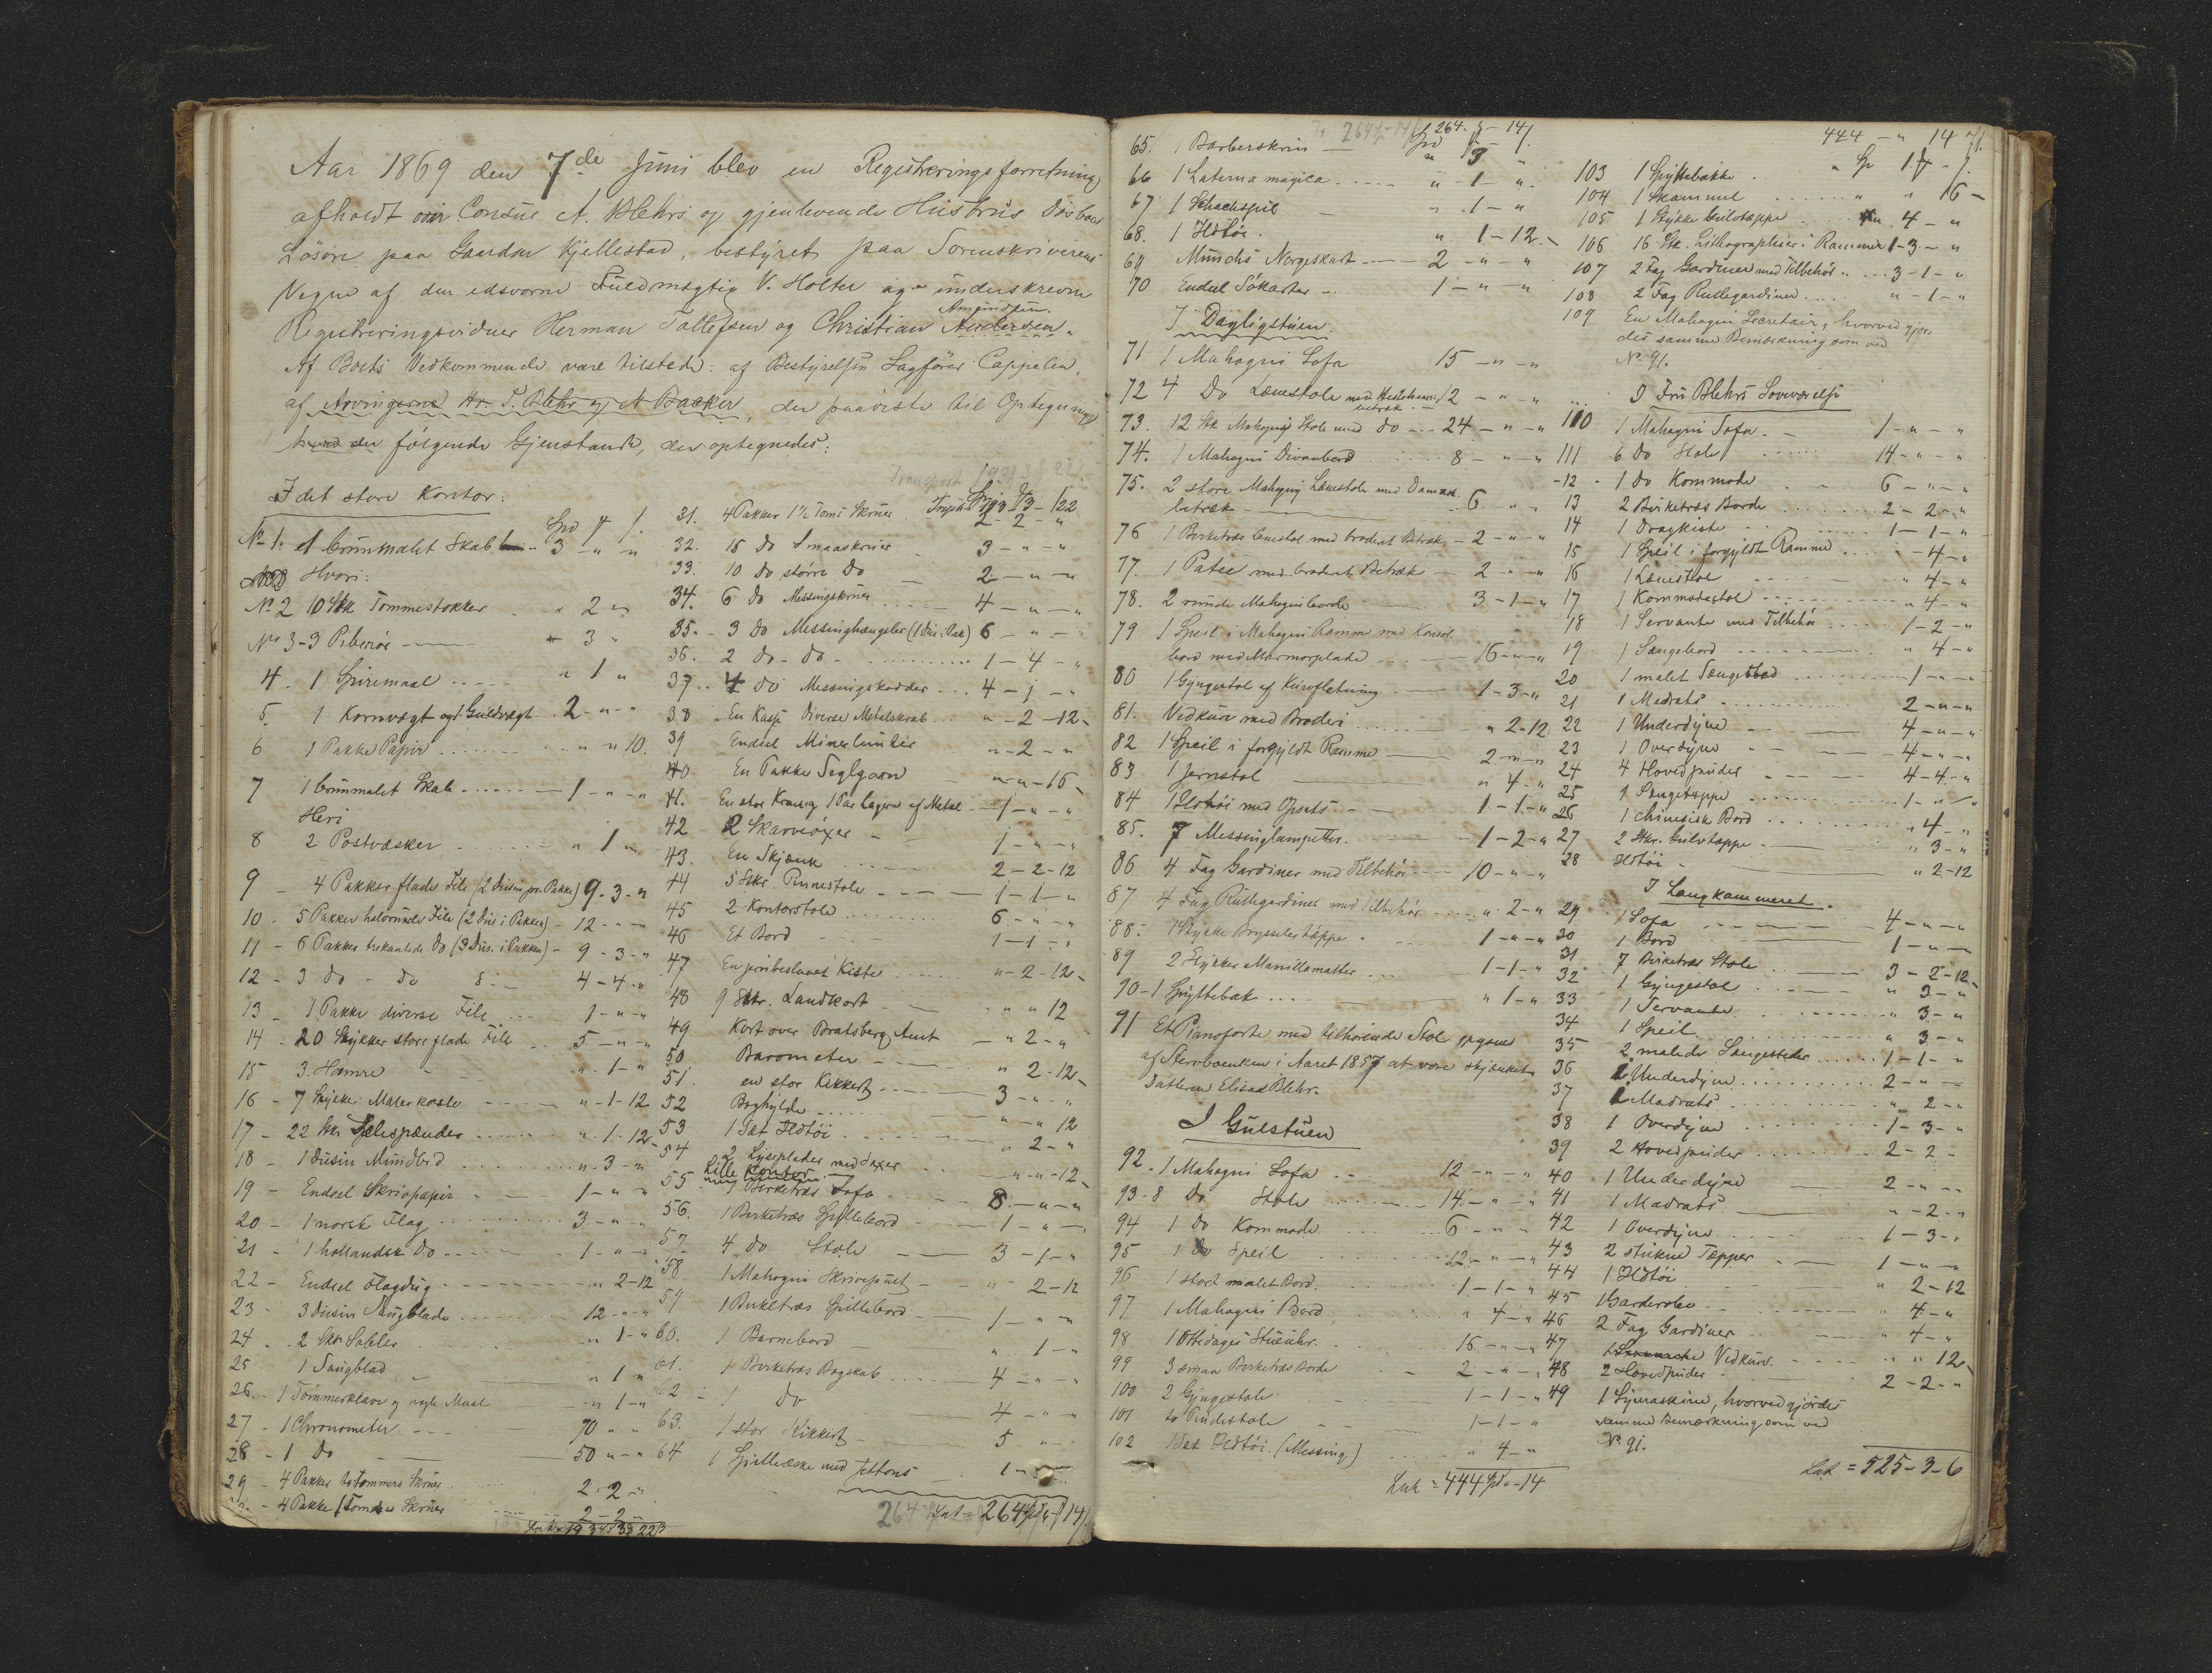 Aar 1869 den 7de Juni blev en Registreringsforretning
afholdt over Consul A. Blehrs og gjenlevende Hustrus Dødsbos
Løsøre paa Gaarden Kjellestad, bestyret paa Sorenskriverens
Vegne af den edsvorne Fuldmægtig V. Holter og underskrevne
Amundsen.
Registreringsvidner Herman Tollefsen og Christian Andersen.
Af Boets Vedkommende vare tilstede: af Bestyrelsen Sagfører Cappelen,
af Arvingerne Hr. P. Blehr og A Backer, der paaviste til Optegning
følgende Gjenstande, der optegnedes:
I det store Kontor:
No 1. 1 brunmalet Skab 3 - " "
Hvori:
No 2 10 Stk Tommestokker " 2 "
No 3 - 3 Piberør " 3 "
4. 1 Spiremaal " 1 "
5. 1 Kornvægt og 1 Guldvægt 2 - " - "
6 1 Pakke Papir " " 10.
7 1 brunmalet Skab 1 - " - "
Heri
8 2 Postvæsker " 1 "
9 - 4 Pakker flade File (2 Dusin pr. Pakke) 9 - 3 - "
10 - 5 Pakker halvrunde File (2 Dus i Pakken) 12 - " - "
11 - 6 Pakker trekantede Do (3 Dus. i Pakken) 9 - 3 - "
12 - 3 do - do 4 - 4 - "
13 1 Pakke diverse File 1 - " - "
14 - 20 Stykker store flade File 5 - " - "
15 3. Hamre " - 1 - "
16 - 7 Stykker Malerkoste " - 1 - 12
17 - 22 Stkr Sælespænder " - 1 - 12
18 - 1 Dusin Mundbid " - 3 - "
19 - Endeel Skrivpapir 1 - " "
20 - 1 norsk Flag 3 - " - "
21 - 1 hollandsk Do 1 - " - "
22 - Endeel Flagdug " 2 - 12
23 - 3 Dusin Saugblade 12 - " - "
24 - 2 Stk Sabler " 1 - "
25 1 Saugblad " 1 "
26. - 1 Tømmerklave og nogle Maal " 1 - "
27 - 1 Chronometer 70 " "
28 - 1 Do 50 " - "
29 - 4 Pakker Tommers Skruer 2 - 2 "
4 Pakke 1 Tomes Skruer 2 - 2 - "
31. 4 Pakker 1½ Toms Skruer 2 - 2 - "
32. 18 Do Smaaskruer 3 - " - "
33. 10 do større Do 2 - " - "
34. 6 Do Messingskruer 4 - " - "
35. - 3 Do Messinghængsler (1 Dus i Pak) 6 - " - "
36. 2 do - do 1 - 4 - "
37. 4 do Messingskodder 4 - 1 - "
38 En Kasse diverse Metalskrab " - 2 - 12
39 Endeel Minerlunter " - 2 - "
40 En Pakke Seglgarn " - " - 16
41. En stor Kran og 1 Par Lagere af Metal 1 - " - "
42 2 Skarveøxer 1 - " - "
43. En Skjænk 2 - 2 - 12
44 5 Stkr. Pinnestole 1 - 1 - "
45 2 Kontorstole 6 - " - "
46 Et Bord 1 - 1 - "
47 En jernbeslaaet Kiste " - 2 - 12
48 9 Stkr. Landkort " " 12
49 Kort over Bratsberg Amt " 2 - "
50 Barometer " 2 - 12
51. en stor Kikkert 3 - " - "
52 Boghylde " - " 12
53 1 Sæt Ildtøi " 2 - "
54 2 Lyseplader med Saxer " - " - 12
Lille Kontor
55 1 Birketræs Sofa 8. - " - "
56. 1 Birketræs Spillebord 1 - " -
57. 4 do Stole 3 - 1 - "
58 1 Mahogni Skrivepult " 2 - 12
59 1 Birketræs Spillebord 1 - " - "
60. 1 Barnebord " 1 - "
61. 1 Birketræs Bogskab 4 - " - "
62 1 Do 4 - " - "
63. 1 stor Kikkert 5 " - "
64 1 Spilleæske med Jettons 1 - "
65. 1 Barberskrin " 3 "
66 1 Laterna magica " - 1 - ".
67 1 Schachspil " - 1 - "
68. 1 Ildtøi. " 1 - 12.
69 Munchs Norgeskart 2 - " - "
70 Endeel Søkarter 1 - " - "
I Dagligstuen.
71 1 Mahogni Sofa 15 - " - "
72 4 Do Lænestole med Hestehaars 12 - " - "
betræk
73. 12 Stk Mahogni Stole med do 24 - " - "
74. 1 Mahogni Divanbord 8 - " - "
75. 2 store Mahogni Lænestole med Damask
betræk 6 " - "
76 1 Birketræs Lænestol med broderet Betræk 2 - " - "
77. 1 Patee med broderet Betræk 2 " - "
78. 2 runde Mahogniborde 3 - 1 - "
79 1 Speil i Mahogni Ramme med Konsol
bord med Marmorplade 16 - " - "
80 1 Gyngestol af Kurvfletning 1 - 3 - "
81. Vedkurv med Broderi " 2 - 12
82 1 Speil i forgyldt Ramme 2 - " - "
83 1 Jernstol " 4 - "
84 1 Ildtøi med Opsats 1 - 1 - "
85. 7 Messinglampetter. 1 - 2 - "
86 4 Fag Gardiner med Tilbehør 10 - " - "
87 4 Fag Rullegardiner med Tilbehør " 2 - "
88. 1 Stykke Brysselertæppe 1 - " - "
89 2 Stykker Manillamatter 1 - 1 - "
90 - 1 Spyttebak " 1 - "
91 Et Pianoforte med tilhørende Stol opgaves
af Stervboenken i Aaret 1857 at være skjænket
Datteren Elisa Blehr.
I Gulstuen
92. 1 Mahogni Sofa 12 - " - "
93 - 8 Do Stole 14. - " - "
94 1 Do Kommode 6 - " - "
95 1 Do Speil 12 - " - "
96 1 stort malet Bord 1 - 1 - "
97 1 Mahogni Bord " 4 - "
98 1 Ottedages Stueuhr. 16 - " - "
99 3 smaa Birketræs Borde 2 - " - "
100 2 Gyngestole 1 - 1 - "
101 Pindestole 1 - 1 - "
102 1 Sæt Ildtøi. (Messing) " 4 - "
Lat = 444 Spd " - 14
103 1 Spyttebakke
104 1 Skammel " " 16 -
105 1 Stykke Gulvtæppe " 4 - "
106 16 Stk. Lithographier i Rammer 1 - 3 - "
107 2 Fag Gardiner med Tilbehør 3 - 1 - "
108 2 Fag Rullegardiner " - 1 - "
109 En Mahogni Secretair, hvorved gjør-
des samme Bemærkning som ved
No 91.
I Fru Blehrs Soveværelse
110 1 Mahogni Sofa. 1 - " - "
111 6 Do Stole 14 - " - "
- 12 - 1 Do Kommode 6 - " - "
13 2 Birketræs Borde 2 - 2 - "
14 1 Dragkiste 1 - 1 - "
15 1 Speil i forgyldt Ramme - 4 - "
16 1 Lænestol " 4 - "
17 1 Kommodestol " 4 - "
18 1 Servante med Tilbehør 1 - 2 - "
19 1 Sengebord " 4 - "
20 1 malet Sengested 1 - " - "
21 1 Madrats 2 - " - "
22 1 Underdyne 4 - " - "
23 1 Overdyne 4 - " - "
24 4 Hovedpuder 4 - 4 - "
25 1 Sengetæppe 1 - " - "
26 1 chinesisk Bord " 4 - "
27 2 Stkr. Gulvtæppe " 3 - "
28 Ildtøi " 2 - 12
I Langkammeret.
29 1 Sofa 4 - " - "
30 1 Bord 1 - " - "
31 7 Birketræs Stole 3 - 2 - 12
32 1 Gyngestol " 3 - "
33 1 Servante " 3 - "
34 1 Speil " 3 - "
35 2 malede Sengesteder 1 - 1 - "
36 1 Underdyne 2 - " - "
37 1 Madrats " 2 - "
38 1 Overdyne 1 - 3 - "
39 2 Hovedpuder 2 - 2 -
40 1 Underdyne 2 - " - "
41 1 Madrats " - 2 - "
42 1 Overdyne 1 - 3 - "
43 2 stukne Tæpper 1 - " - "
44 1 Ildtøi " 2 - 12
45 1 Garderobe " 4 - "
46 2 Fag Gardiner " 4 - "
47 Vedkurv. " " 12
48 2 Hovedpuder 2 - 2 - "
49 1 Symaskine, hvorved gjordes
samme Bemærkning som ved
No 91.
Lat = 525 - 3 - 6